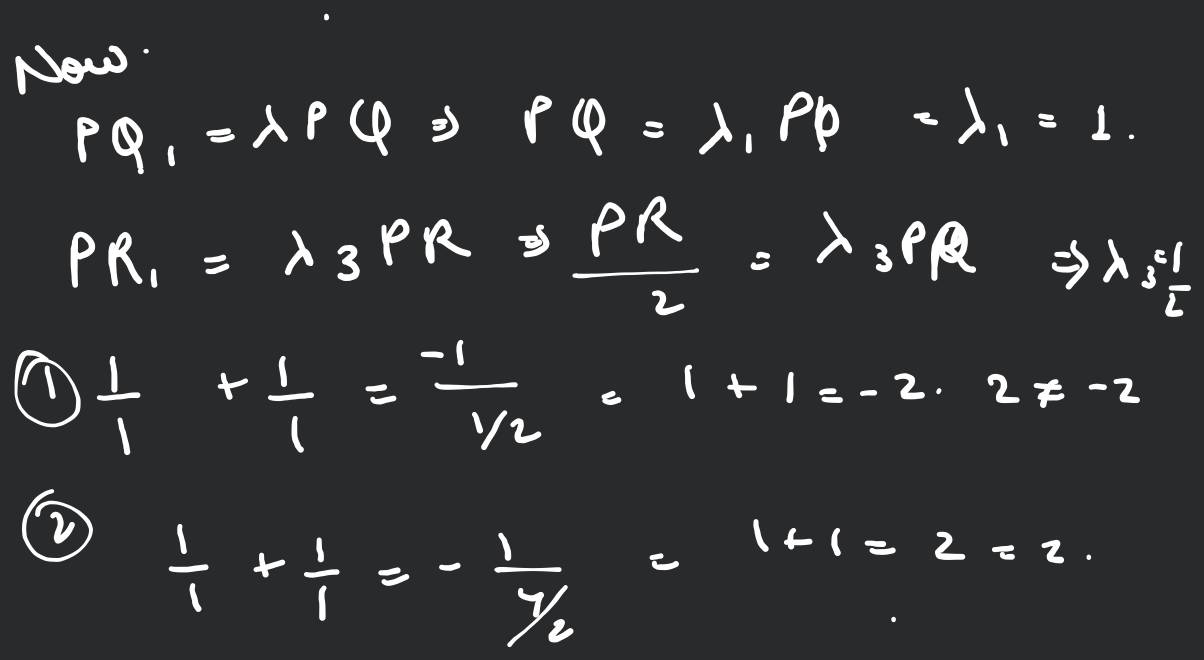 Now
PQ₁ = λPQ ⇒ PQ = λ₁PQ = λ₁ = 1.
PR₁ = λ₃PR ⇒ PR/2 = λ₃PR ⇒ λ₃ = 1/2
① 1/1 + 1/1 = -1/1/2 = 1 + 1 = -2. 2 ≠ -2
② 1/1 + 1/1 = - 1/1/2 = 1 + 1 = 2 = 2.